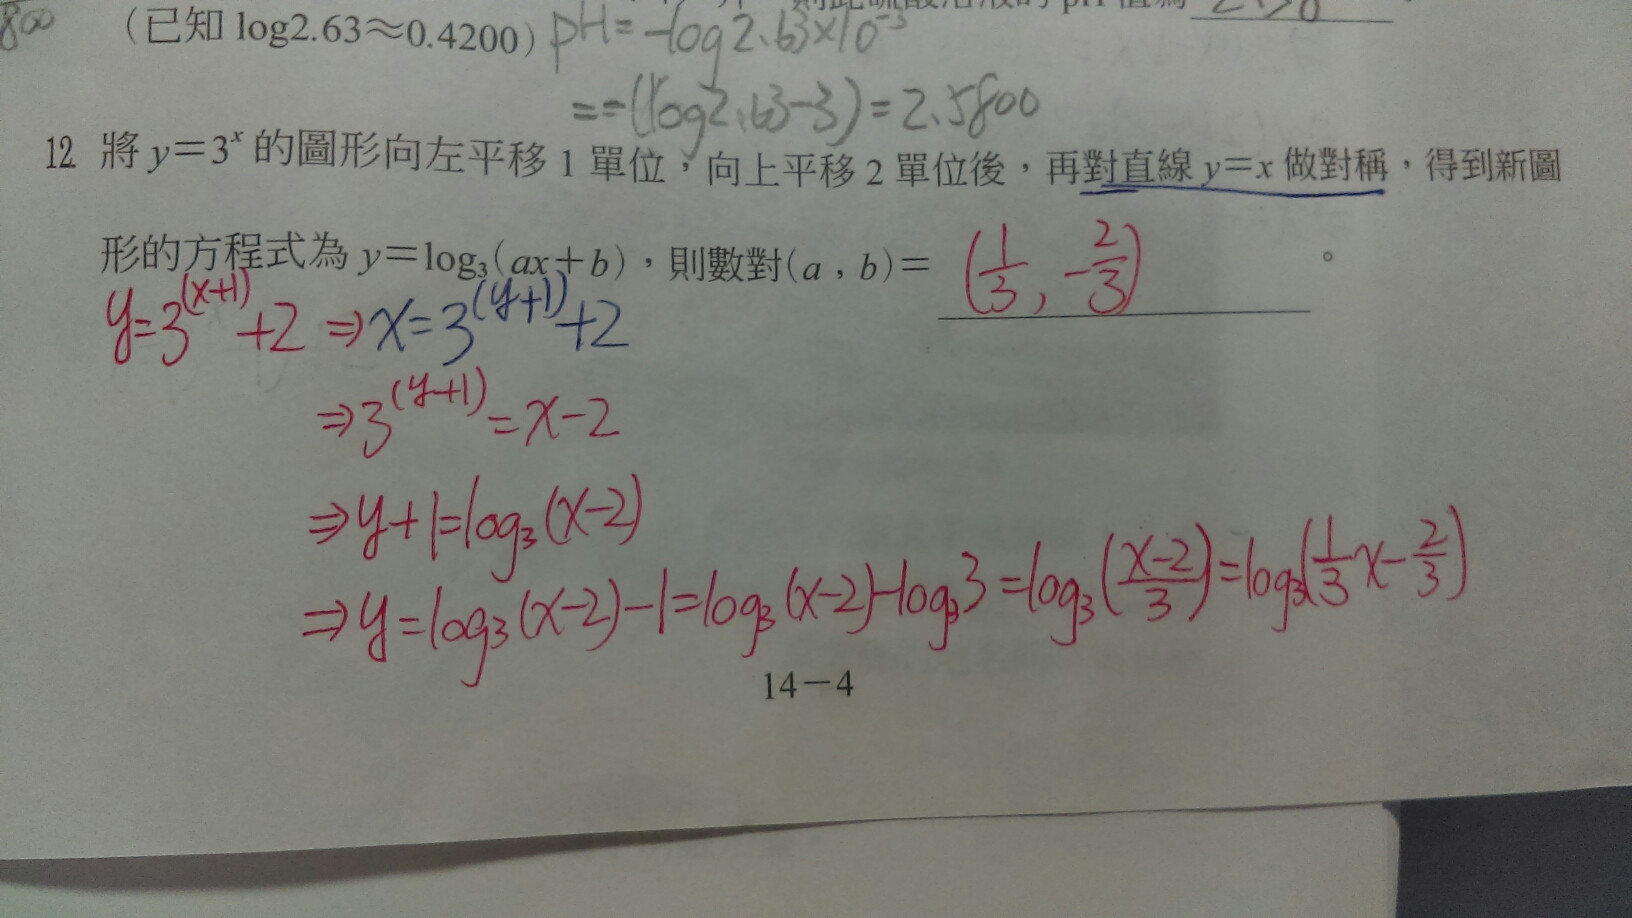 800
（已知 log2.63≈0.4200） pH=-log2.63×10⁻³
=-(log2.63-3)=2.5800
12. 將 y＝3ˣ 的圖形向左平移 1 單位，向上平移 2 單位後，再對直線 y＝x 做對稱，得到新圖
形的方程式為 y＝log₃(ax＋b)，則數對(a , b)＝ (1/3, -2/3) 。
y=3^(x+1)+2 ⇒ x=3^(y+1)+2
⇒3^(y+1)=x-2
⇒y+1=log₃(x-2)
⇒y=log₃(x-2)-1=log₃(x-2)-log₃3=log₃((x-2)/3)=log₃(1/3x-2/3)
14－4